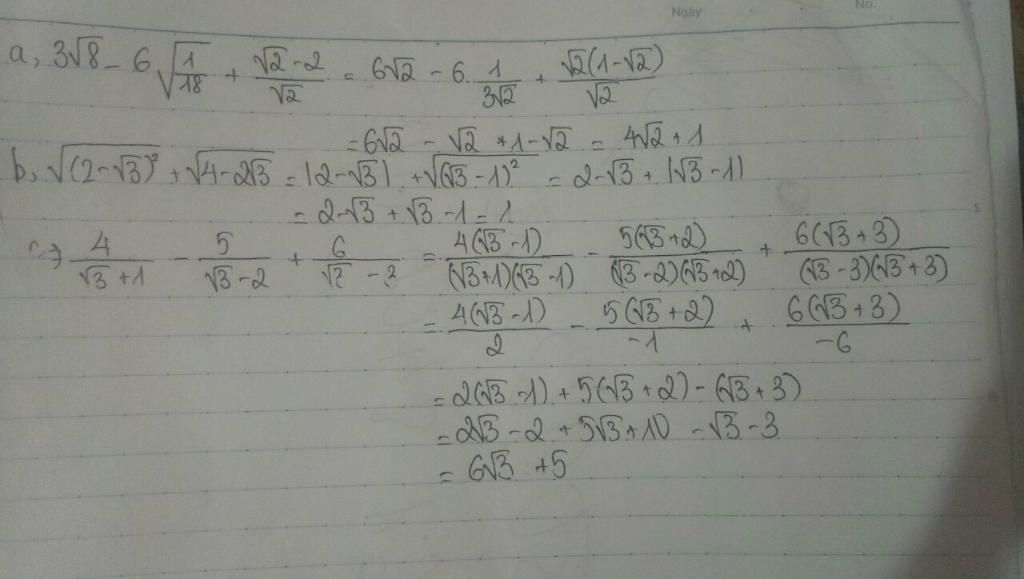 Ngày
No.
a, 3√8 - 6√(1/18) + (√2 - 2)/√2 = 6√2 - 6.1/(3√2) + √2(1-√2)/√2
= 6√2 - √2 + 1 - √2 = 4√2 + 1
b, √((2-√3)²) + √(4-2√3) = |2-√3| + √((√3-1)²) = 2-√3 + |√3-1|
= 2-√3 + √3 - 1 = 1
c, 4/(√3+1) - 5/(√3-2) + 6/(√3-3) = 4(√3-1)/((√3+1)(√3-1)) - 5(√3+2)/((√3-2)(√3+2)) + 6(√3+3)/((√3-3)(√3+3))
5
= 4(√3-1)/2 - 5(√3+2)/-1 + 6(√3+3)/-6
= 2(√3-1) + 5(√3+2) - (√3+3)
10
= 2√3 - 2 + 5√3 + 10 - √3 - 3
= 6√3 + 5